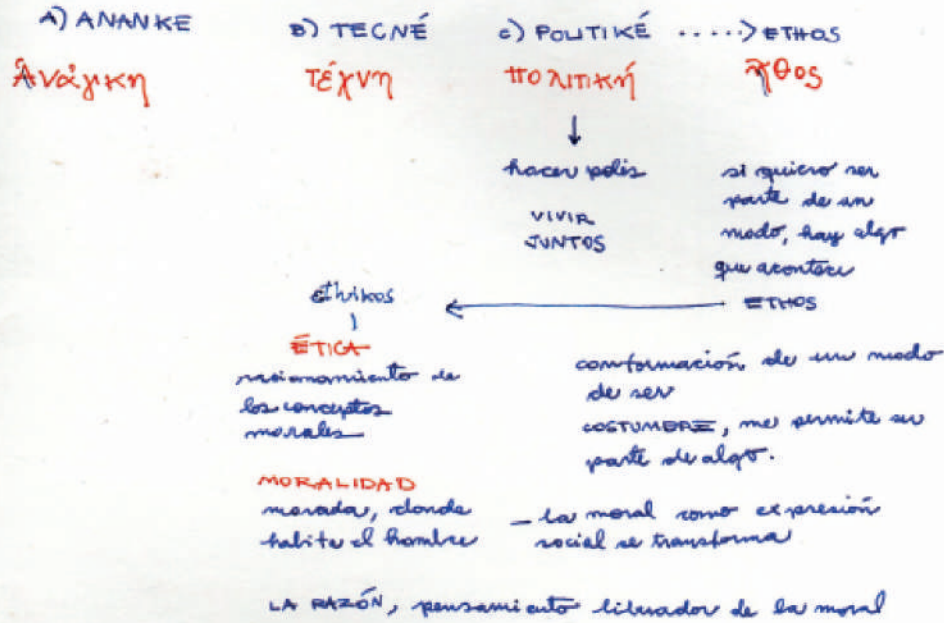 A) ANANKE
B) TECNÉ
c) POLITIKÉ .....> ETHOS
Ἀνάγκη
τέχνη
πολιτική
ἦθος
hacer polis
VIVIR
JUNTOS
si quiero ser
parte de un
modo, hay algo
que acontece
ethikos
ETHOS
ÉTICA
razionamiento de
los conceptos
morales
conformación de un modo
de ser
COSTUMBRE, me permite ser
parte de algo.
MORALIDAD
morada, donde
habita el hombre
- la moral como expresión
social se transforma
LA RAZÓN, pensamiento liberador de la moral